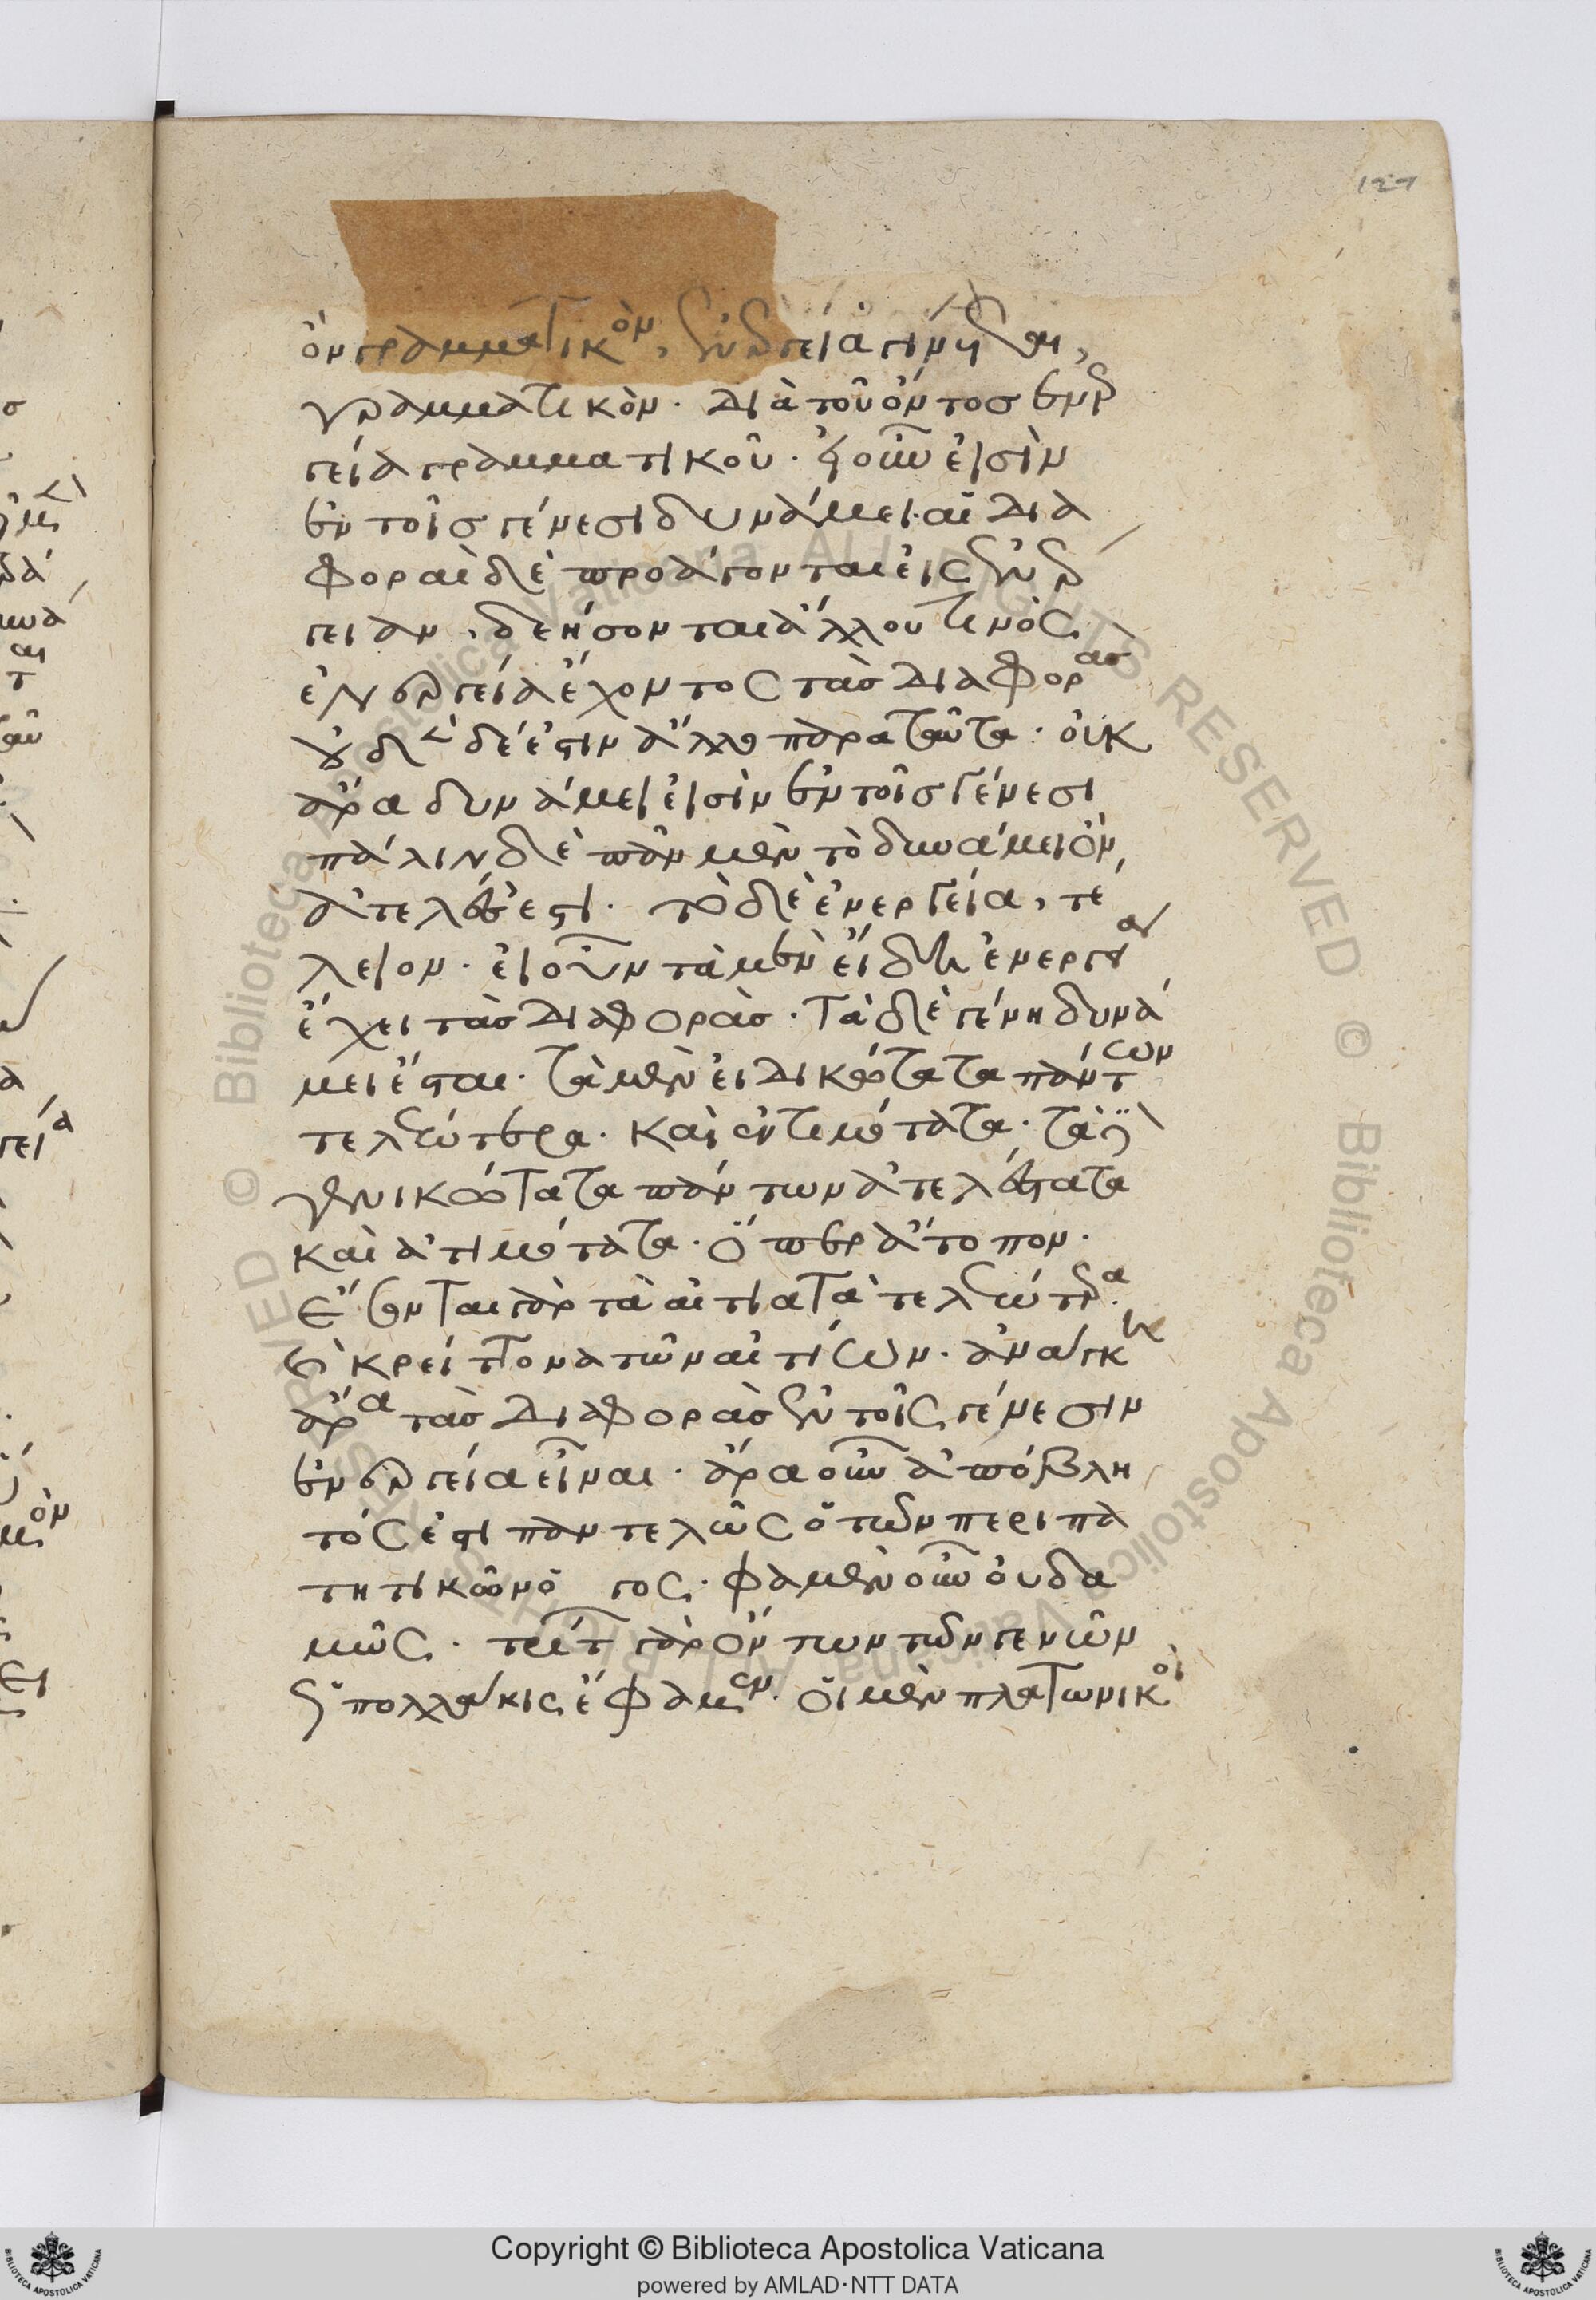 127
ὂν γραμματικὸν, ἐνεργεία γίνηται,
γραμματικὸν. διὰ τοῦ ὄντος ἐνερ
γεία γραμματικοῦ. εἰ οὖν εἰσὶν
ἐν τοῖς γένεσι δυνάμει αἱ δια
φοραὶ δὲ προάγονται εἰς ἐνέρ
γειαν, δεήσονται ἄλλου τινὸς
ἐνεργεία ἔχοντος τὰς διαφορας
οὐδὲν δέ ἐστιν ἄλλο παρα ταῦτα. οὐκ
ἄρα δυνάμει εἰσὶν ἐν τοῖς γένεσι
πάλιν δὲ πᾶν μὲν τὸ δυνάμει ὂν,
ἀτελές ἐστι. τὸ δὲ ἐνεργεία, τέ
λειον. εἰ οὖν τὰ μὲν εἴδη ἐνεργεία
ἔχει τὰς διαφορὰς. τὰ δὲ γένη δυνά
μει ἔσται. τὰ μὲν εἰδικώτατα πάντων
τελεώτερα. καὶ ἐντιμότατα. τὰ δὲ
γενικώτατα πάντων ἀτελέστατα
καὶ ἀτιμότατα. ὅπερ ἄτοπον.
ἔσονται γὰρ τὰ αἰτιατὰ τελεώτερα
καὶ κρείττονα τῶν αἰτίων. ἀνάγκη
ἄρα τὰς διαφορὰς ἐν τοῖς γένεσιν
ἐνεργεία εἶναι. ἄρα οὖν ἀπόβλη
τός ἐστι παντελῶς ὁ τῶν περιπα
τητικῶν λό γος. φαμὲν οὖν οὐδα
μῶς. τριττῶν γὰρ ὄντων τῶν γενῶν
ὡς πολλάκις ἔφαμεν. οἱ μὲν πλατωνικοὶ
Copyright © Biblioteca Apostolica Vaticana
powered by AMLAD·NTT DATA